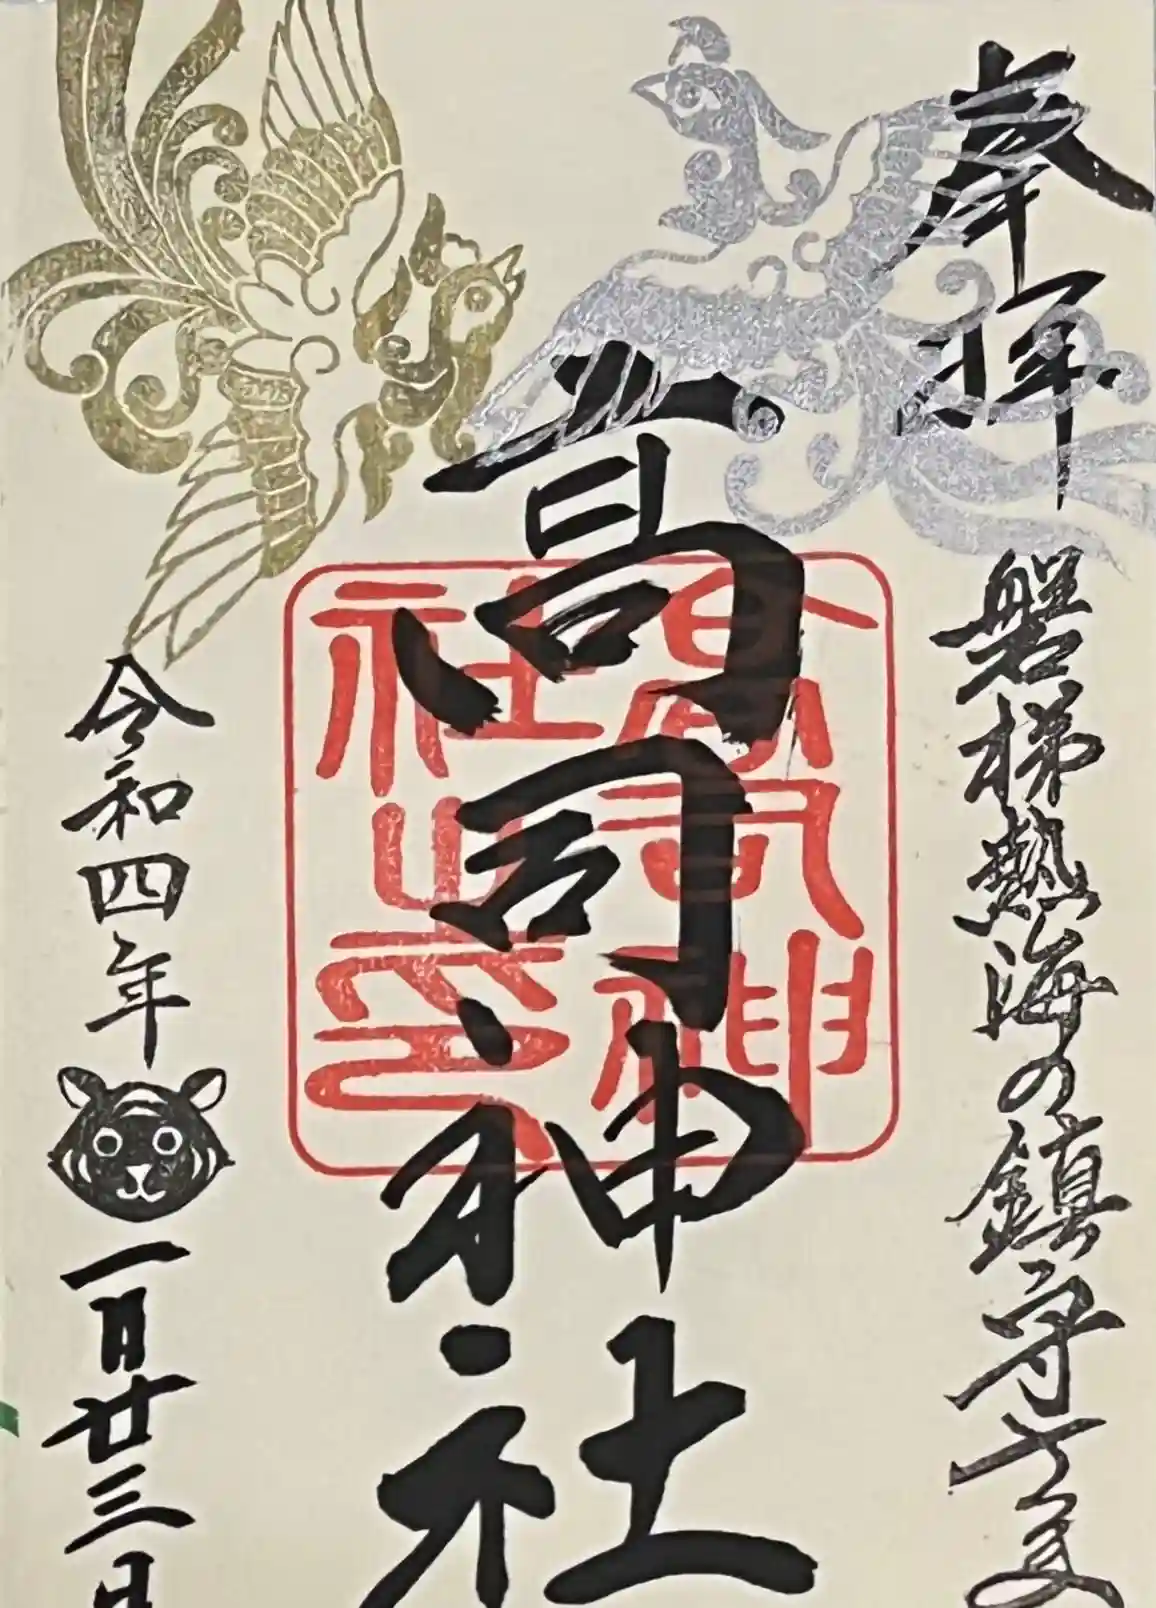 奉拝
磐梯熱海の鎮守
高司神社
高司神
社之印
令和四年
一月廿三日